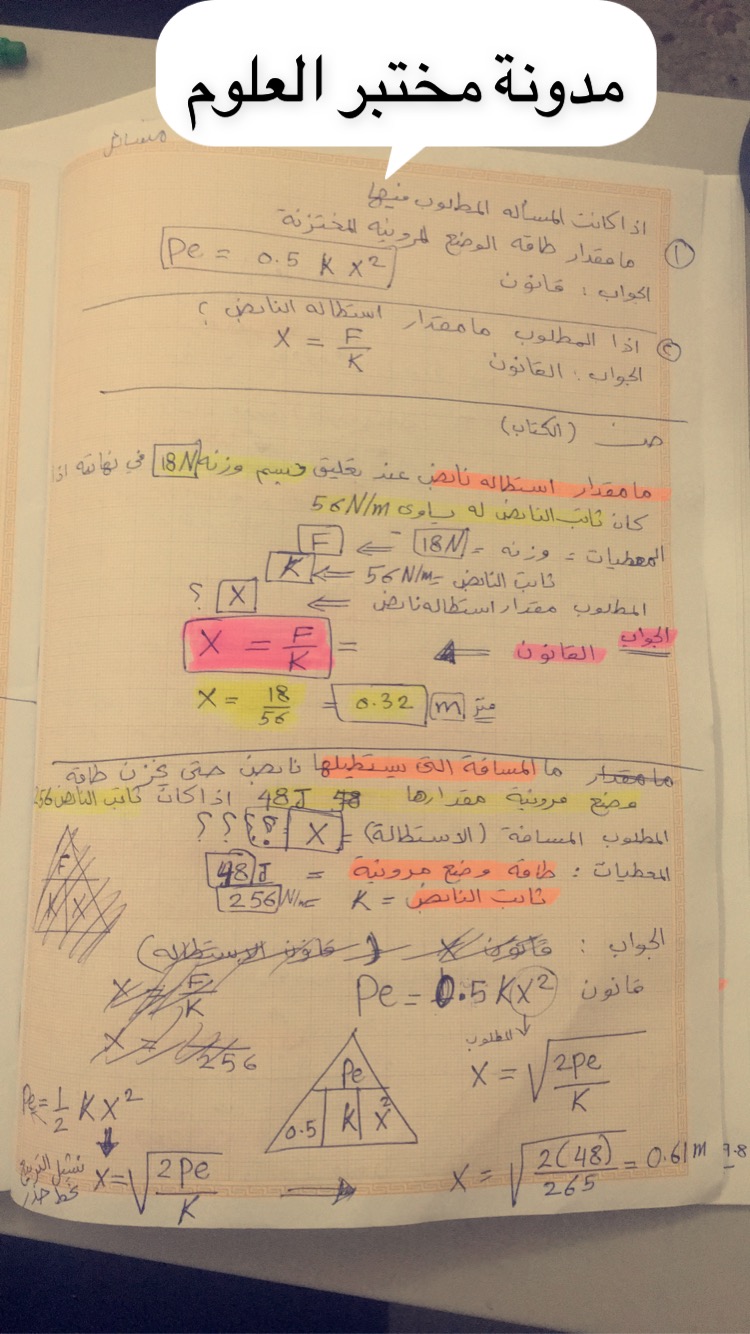 مدونة مختبر العلوم
مسائل
اذا كانت المسأله المطلوب فيها
① ما مقدار طاقه الوضع المرونيه المختزنة
الجواب : قانون Pe = 0.5 K X²
② اذا المطلوب ما مقدار استطاله النابض ؟
الجواب : القانون X = F/K
(الكتاب)
ما مقدار استطاله نابض عند تعليق جسم وزنه 18N في نهايته اذا
كان ثابت النابض له يساوى 56N/m
المعطيات = وزنه = 18N ⇐ F
ثابت النابض = 56N/m ⇐ K
المطلوب مقدار استطاله نابض ⇐ X ؟
الجواب القانون = X = F/K
X = 18/56 = 0.32 m متر
ما مقدار ما المسافة التى يستطيلها نابض حتى يخزن طاقة
وضع مرونية مقدارها 48J 48 اذا كان ثابت النابض 256
المطلوب المسافة (الاستطالة) = X ؟؟ ؟؟؟
المعطيات : طاقه وضع مرونية = 48J
ثابت النابض = K = 256 N/m
F
K X
الجواب : قانون X (قانون الاستطاله)
X = F/K
قانون Pe = 0.5 K X²
X = /256
المطلوب
X = √2pe/K
Pe
0.5 K X²
Pe = 1/2 K X²
X = √2Pe/K
X = √2(48)/265 = 0.61 m
9.8